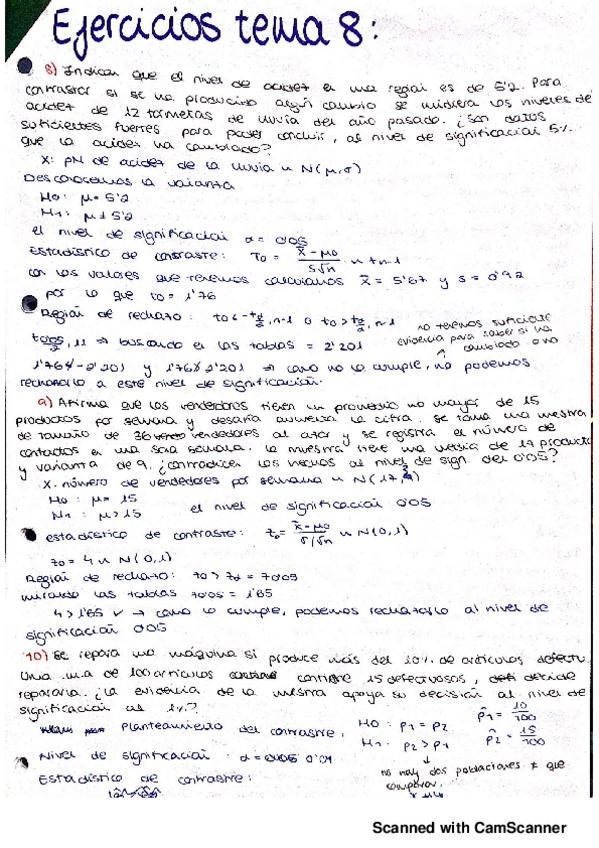 Ejercicios tema 8:
8) Indican que el nivel de acidez en una región es de 5'2. Para
contrastar si se ha producido algún cambio se midiera los niveles de
acidez de 12 tormetas de lluvia del año pasado. ¿Son datos
suficientes fuertes para poder concluir, al nivel de significación 5%
que la acidez ha cambiado?
X: pH de acidez de la lluvia ~ N(μ,σ)
Desconocemos la varianza
H0: μ = 5'2
H1: μ ≠ 5'2
el nivel de significación α = 0'05
Estadístico de contraste: T0 = x̄ - μ0 / S√n ~ tn-1
con los valores que tenemos calculamos x̄ = 5'67 y s = 0'92
por lo que t0 = 1'76
Región de rechazo: t0 < -tα/2, n-1 o t0 > tα/2, n-1
no tenemos suficiente
evidencia para saber si ha
cambiado o no
t0'05/2, 11 ⇒ buscando en las tablas = 2'201
1'76 ≮ -2'201 y 1'76 ≯ 2'201 ⇒ como no lo cumple, no podemos
rechazarlo a este nivel de significación.
9) Afirma que los vendedores tienen un promedio no mayor de 15
productos por semana y desaría aumentar la cifra. Se toma una muestra
de tamaño de 36 vendedores al azar y se registra el número de
contactos en una sola semana. La muestra tiene una media de 17 product
y varianza de 9. ¿contradicen los hechos al nivel de sign. del 0'05?
X: número de vendedores por semana ~ N(17,
H0: μ = 15
H1: μ > 15
el nivel de significación 0'05
estadístico de contraste: z0 = x̄ - μ0 / s/√n ~ N(0,1)
z0 = 4 ~ N(0,1)
Región de rechazo: z0 > zα = z0'05
mirando las tablas z0'05 = 1'65
4 > 1'65 ✓ → como lo cumple, podemos rechazarlo al nivel de
significación 0'05
10) Se repara una máquina si produce más del 10% de artículos defectu
Una m.a de 100 artículos contiene 15 defectuosos, decide
repararla. ¿La evidencia de la muestra apoya su decisión al nivel de
significación al 1%?
Planteamiento del contraste:
H0: p1 = p2
p̂1 = 10/100
H1: p2 > p1
p̂2 = 15/100
Nivel de significación: α = 0'01
no hay dos poblaciones ≠ que
comparar.
Estadístico de contraste:
Scanned with CamScanner